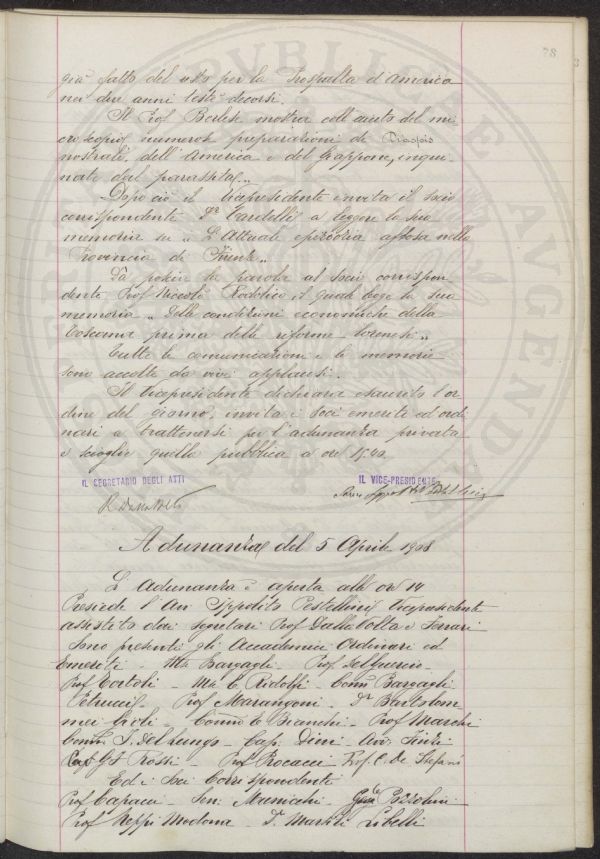 38
già fatto del 1880 per la Prespalta d'America
nei due anni testè decorsi.
Il Prof. Berlese mostra coll'aiuto del mi
croscopio numerose preparazioni di Diaspis
nostrali, dell'America e del Giappone, inqui
nate dal parassita.
Dopo ciò il Vicepresidente invita il socio
corrispondente Dr a leggere la sua
memoria su "L'Attuale epizoozia aftosa nella
Provincia di Firenze".
Dà poscia la parola al Socio corrispon
dente Prof. Niccolò Rodolico, il quale legge la sua
memoria "Delle condizioni economiche della
Toscana prima delle riforme lorenesi".
Tutte le comunicazioni e le memorie
sono accolte da vivi applausi.
Il Vicepresidente dichiara esaurito l'or
dine del giorno, invita i Soci emeriti ed ordi
nari a trattenersi per l'adunanza privata
e scioglie quella pubblica a ore 15,40.
IL SEGRETARIO DEGLI ATTI IL VICE-PRESIDENTE
Adunanza del 5 Aprile 1908
L'Adunanza è aperta alle ore 14
Presiede l'Avv. Ippolito Pestellini Vicepresidente
assistito dai segretari Prof. Dalla Volta e Ferrari
Sono presenti gli Accademici Ordinari ed
Emeriti - Bargagli - Prof. Del Guercio -
Prof. Bertoli - C. Ridolfi - Comm. Bargagli
Petrucci - Prof. Marangoni - Dr Bartolom
mei Gioli - Bianchi - Prof. Marchi
I. Del Lungo - Cap. Dini - Avv.
G. Rossi - Prof. Procacci - Prof. C. De Stefani
Ed i Soci Corrispondenti
Prof. Capacci - Sen. Niccolini -
Prof. Neppi Modona - Dr. Martelli Libelli